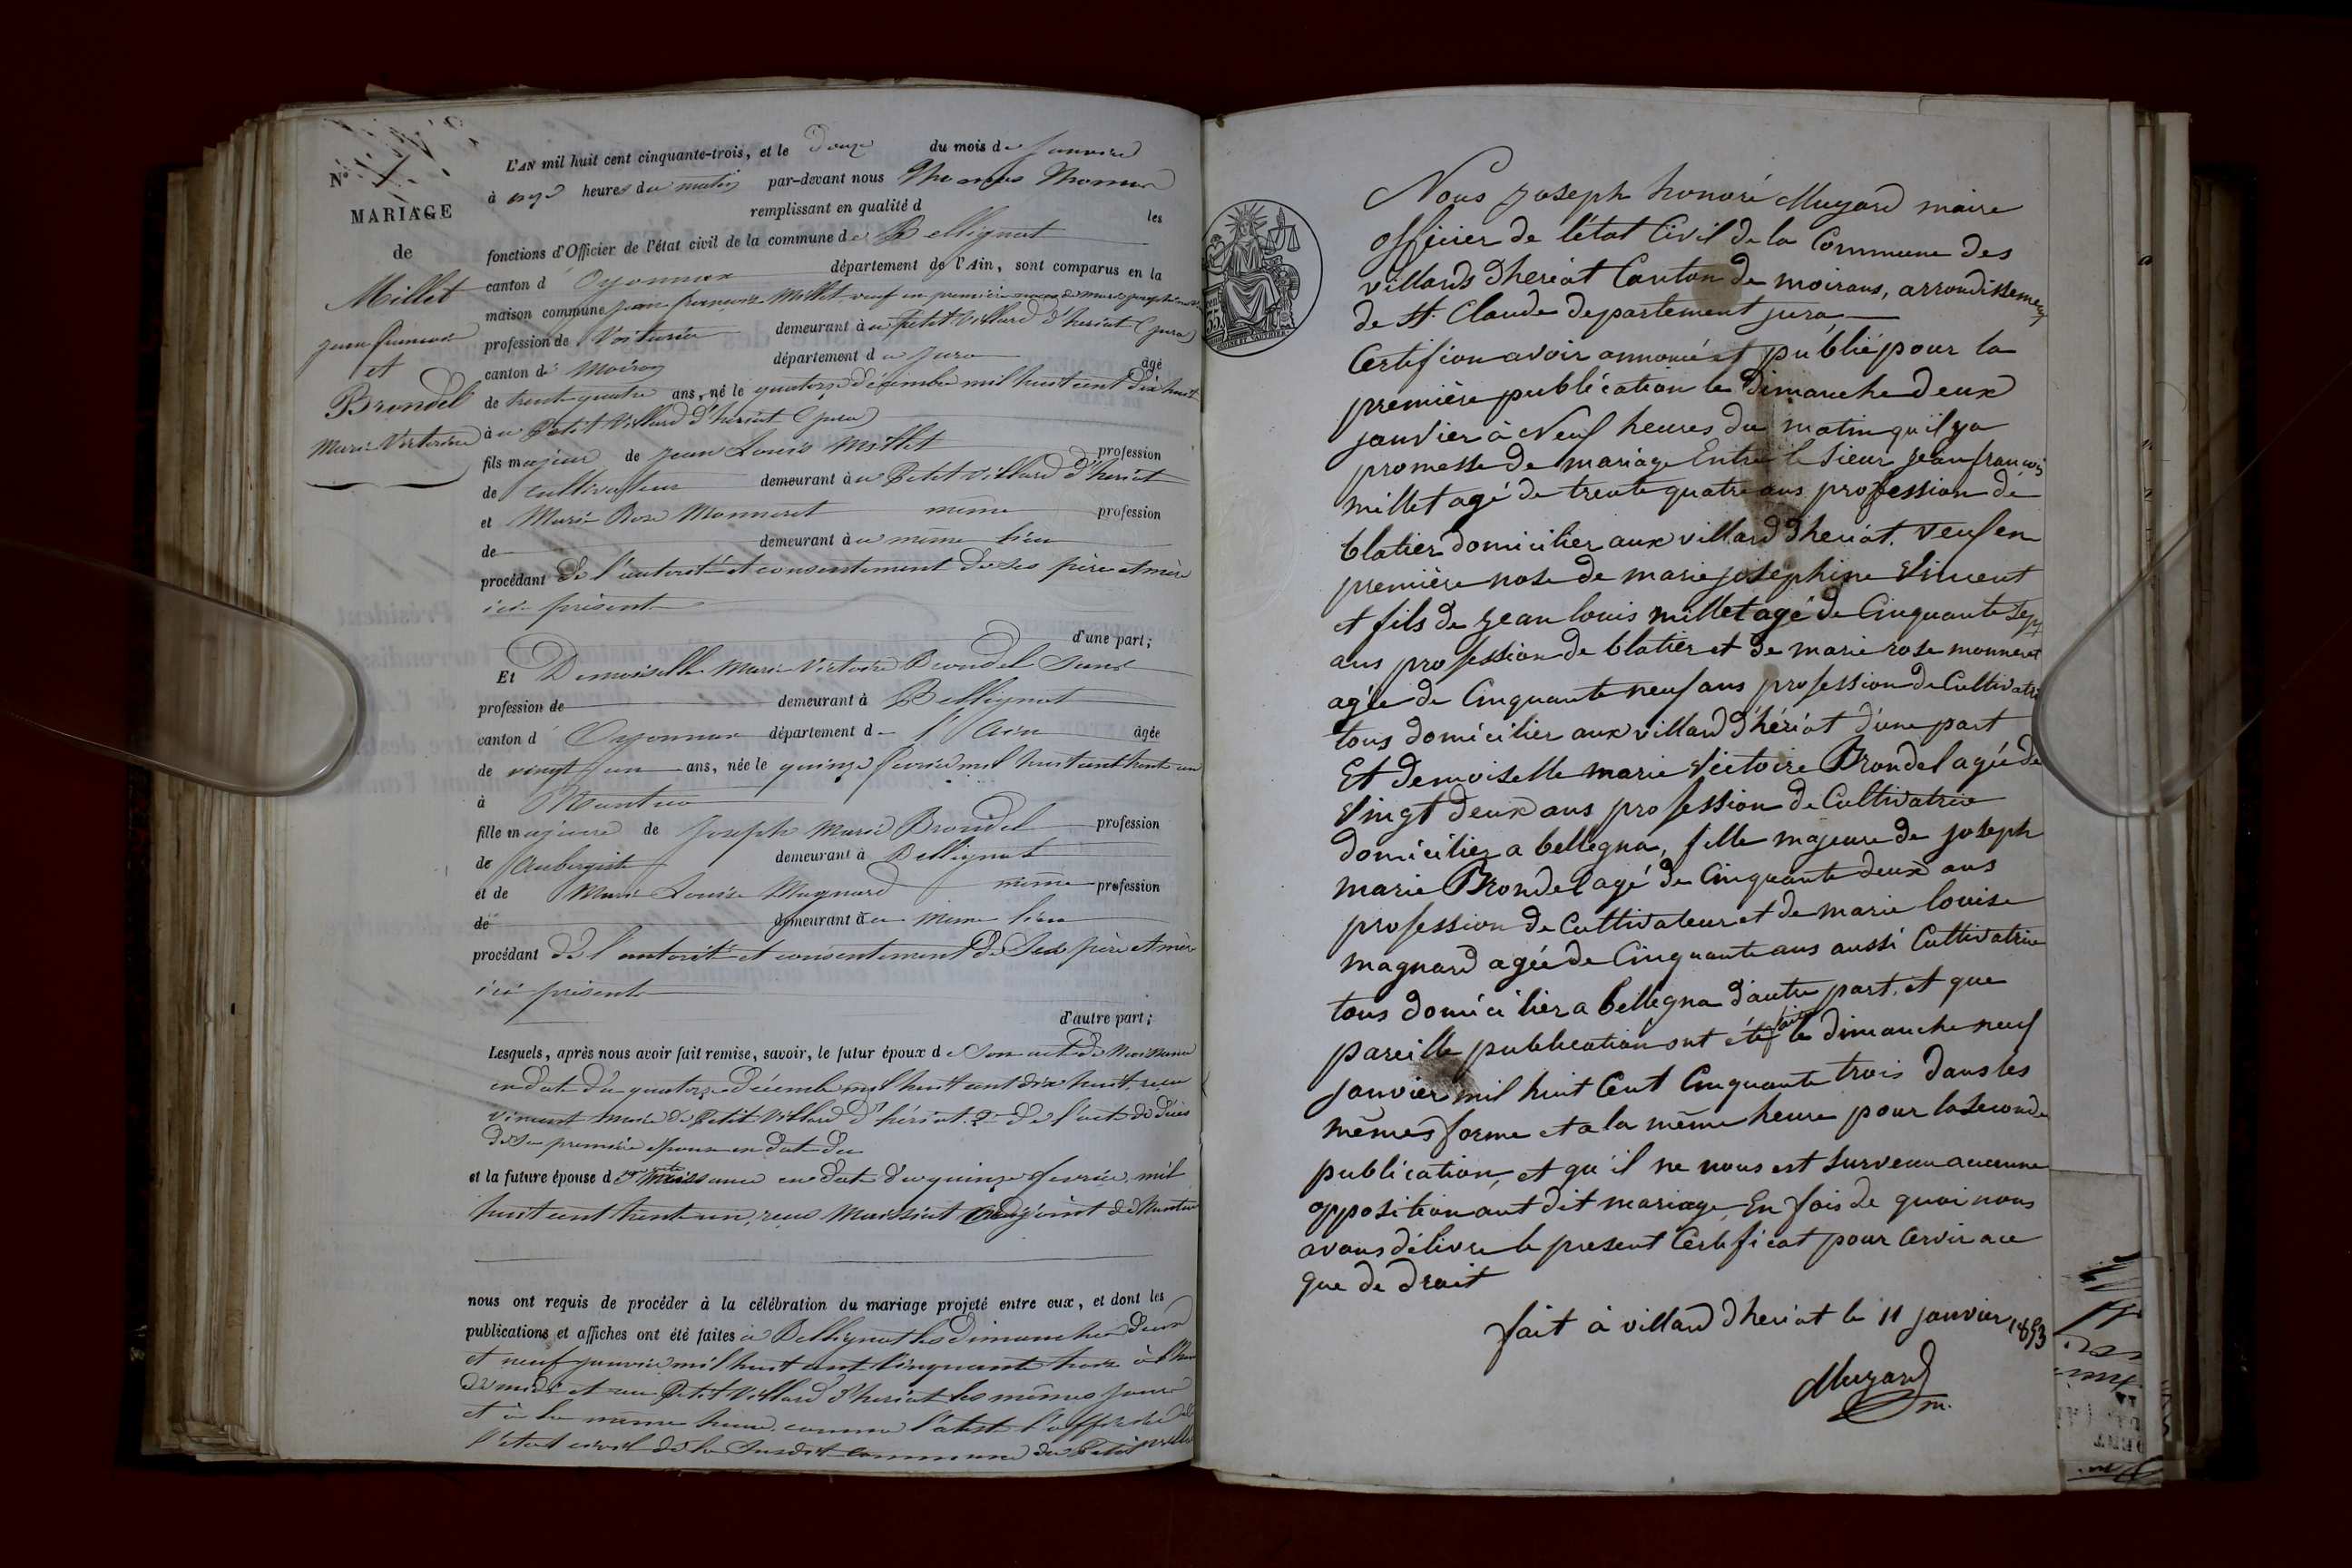 N° 1
MARIAGE
de
Millet
jean françois
et
Brondel
Marie Victoire
L'AN mil huit cent cinquante-trois, et le Douze du mois de janvier
à onze heures du matin par-devant nous Thomas
remplissant en qualité d les
fonctions d'Officier de l'état civil de la commune de Bellignat
canton d'Oyonnax département de l'Ain, sont comparus en la
maison commune jean françois Millet veuf en première noces de Marie josephine
profession de Voiturier demeurant à u Petit Villard d'heriat (jura)
canton de Moiran département du jura âgé
de trente quatre ans, né le quatorze décembre mil huit cent dix huit
à u Petit Villard d'heriat (jura)
fils majeur de jean Louis Millet profession
de cultivateur demeurant à u Petit Villard d'heriat
et Marie Rose Monneret même profession
de demeurant à u même lieu
procédant de l'autorité et consentement de ses père et mère
ici présents
d'une part;
Et Demoiselle Marie Victoire Brondel Sans
profession de demeurant à Bellignat
canton d'Oyonnax département de l'Ain âgée
de vingt un ans, née le quinze fevrier mil huit cent trente un
à Nantua
fille majeure de joseph Marie Brondel profession
de Aubergiste demeurant à Bellignat
et de Marie Louise Magnard même profession
de demeurant à u même lieu
procédant de l'autorité et consentement de Ses père et mère
ici présents
d'autre part;
Lesquels, après nous avoir fait remise, savoir, le futur époux de Son acte de Naissance
en date du quatorze Décembre mil huit cent dix huit, reçu
Vincent Maire de Petit Villard d'hériat. 2° de l'acte de décès
de Sa première épouse en date du
et la future épouse d Son acte Naissance en date du quinze fevrier mil
huit cent trente un, reçu Maissiat adjoint de Nantua
nous ont requis de procéder à la célébration du mariage projeté entre eux, et dont les
publications et affiches ont été faites à Bellignat les dimanches deux
et neuf janvier mil huit cent cinquante trois à l'heure
de midi et au Petit Villard d'heriat les mêmes jours
et à la même heure comme l'atteste l'officier de
l'état civil de la Susdite commune du Petit Villard
Nous joseph honoré Muyard maire
officier de l'état Civil de la Commune des
villards d'heriat Canton de moirans, arrondissement
de St. Claude departement jura
Certifion avoir annoncé et publié pour la
première publication le Dimanche deux
janvier à Neuf heures du matin qu'il y a
promesse de mariage Entre le Sieur jean françois
millet agé de trente quatre ans profession de
blatier domicilier aux villard D'heriat. veuf en
première nose de marie josephine Vincent
et fils de jean louis millet agé de Cinquante sept
ans profession de blatier et de marie rose monneret
agée de Cinquante neuf ans profession de Cultivatri
tous domicilier aux villard d'hériat d'une part
Et demoiselle marie Victoire Brondel agée de
Vingt deux ans profession de Cultivatrice
domicilier a bellegna, fille majeure de joseph
marie Brondel agé de Cinquante deux ans
profession de Cultivateur et de marie louise
magnard agée de Cinquante ans aussi Cultivatrice
tous domicilier a bellegna d'autre part. et que
pareille publication ont été faite le dimanche neuf
janvier mil huit Cent Cinquante trois dans les
mêmes forme et a la même heure pour la seconde
publication, et qu'il ne nous est survenu aucune
opposition aut dit mariage, En fois de quoi nous
avons délivre le present Certificat pour Cervir a ce
que de droit
fait à villard d'heriat le 11 janvier 1853
Muyard
m.